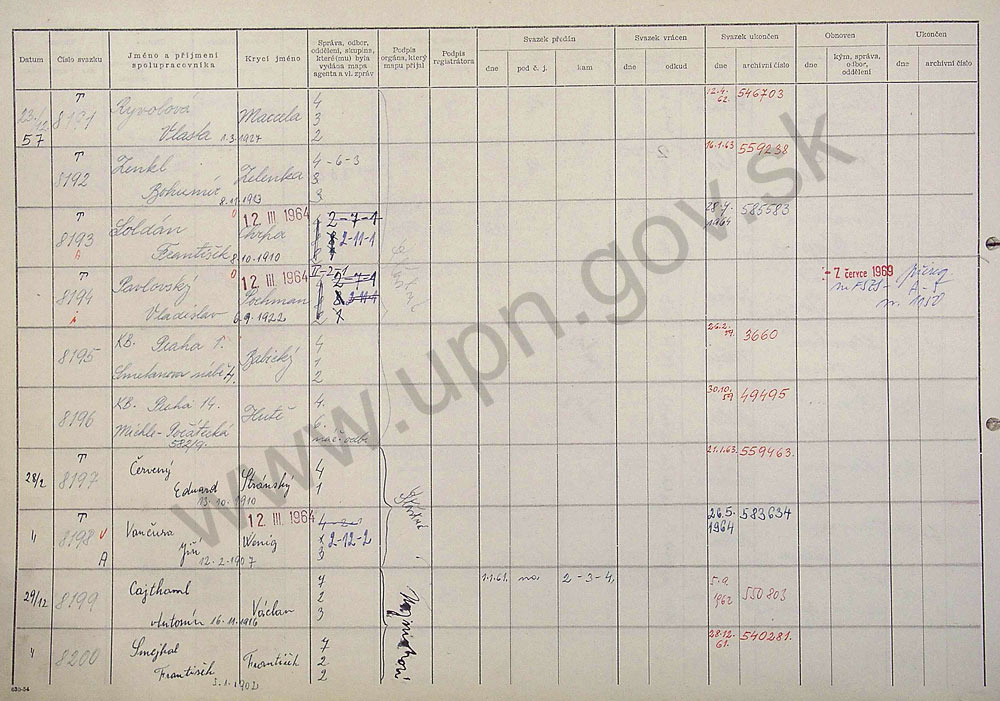 Datum
Číslo svazku
Jméno a příjmení
spolupracovníka
Krycí jméno
Správa, odbor,
oddělení, skupina,
které(mu) byla
vydána mapa
agenta a vl. zpráv
Podpis
orgánu, který
mapu přijal
Podpis
registrátora
Svazek předán
dne
pod č. j.
kam
Svazek vrácen
dne
odkud
Svazek ukončen
dne
archivní číslo
Obnoven
dne
kým, správa,
odbor,
oddělení
Ukončen
dne
archivní číslo
T
57
8191
Ryvolová
Vlasta 1.3.1927
Macula
4
3
2
12.4.
62.
546703
T
8192
Zenkl
Bohumír
Zelenka
4-6-3
3
3
16.1.63
559238
T
8193
A
Soldán
František 8.10.1910
12 III 1964
2-7-1
2-11-1
28.7.
1964
585583
T
8194
A
Pavlovský
Vladislav 6.9.1922
12 III 1964
Pochman
II-2-1
2-7-1
2-11-1
- 7. července 1969
8195
KB. Praha 1.
Smetanovo nábř. 4.
Babický
4
1
2
26.2.
59.
3660
8196
KB. Praha 14.
Michle-Počátecká
582/9.
Hutě
4.
30.10.
59
49495
28/2
T
8197
Červený
Eduard
13.10.1910
Stránský
4
1
21.1.63.
559463.
"
T
8198
A
Vančura
Jiří
12.2.1907
12 III 1964
Wenig
4-2-1
2-12-2
3
26.5.
1964
583634
29/12
8199
Cajthaml
Antonín 16.11.1916
Václav
7
2
3
1.1.61.
na
2-3-4.
5.9.
1962
550803
"
8200
Smejkal
František
3.1.1902
František
7
2
2
28.12.
61.
540281.
630-54
www.upn.gov.sk